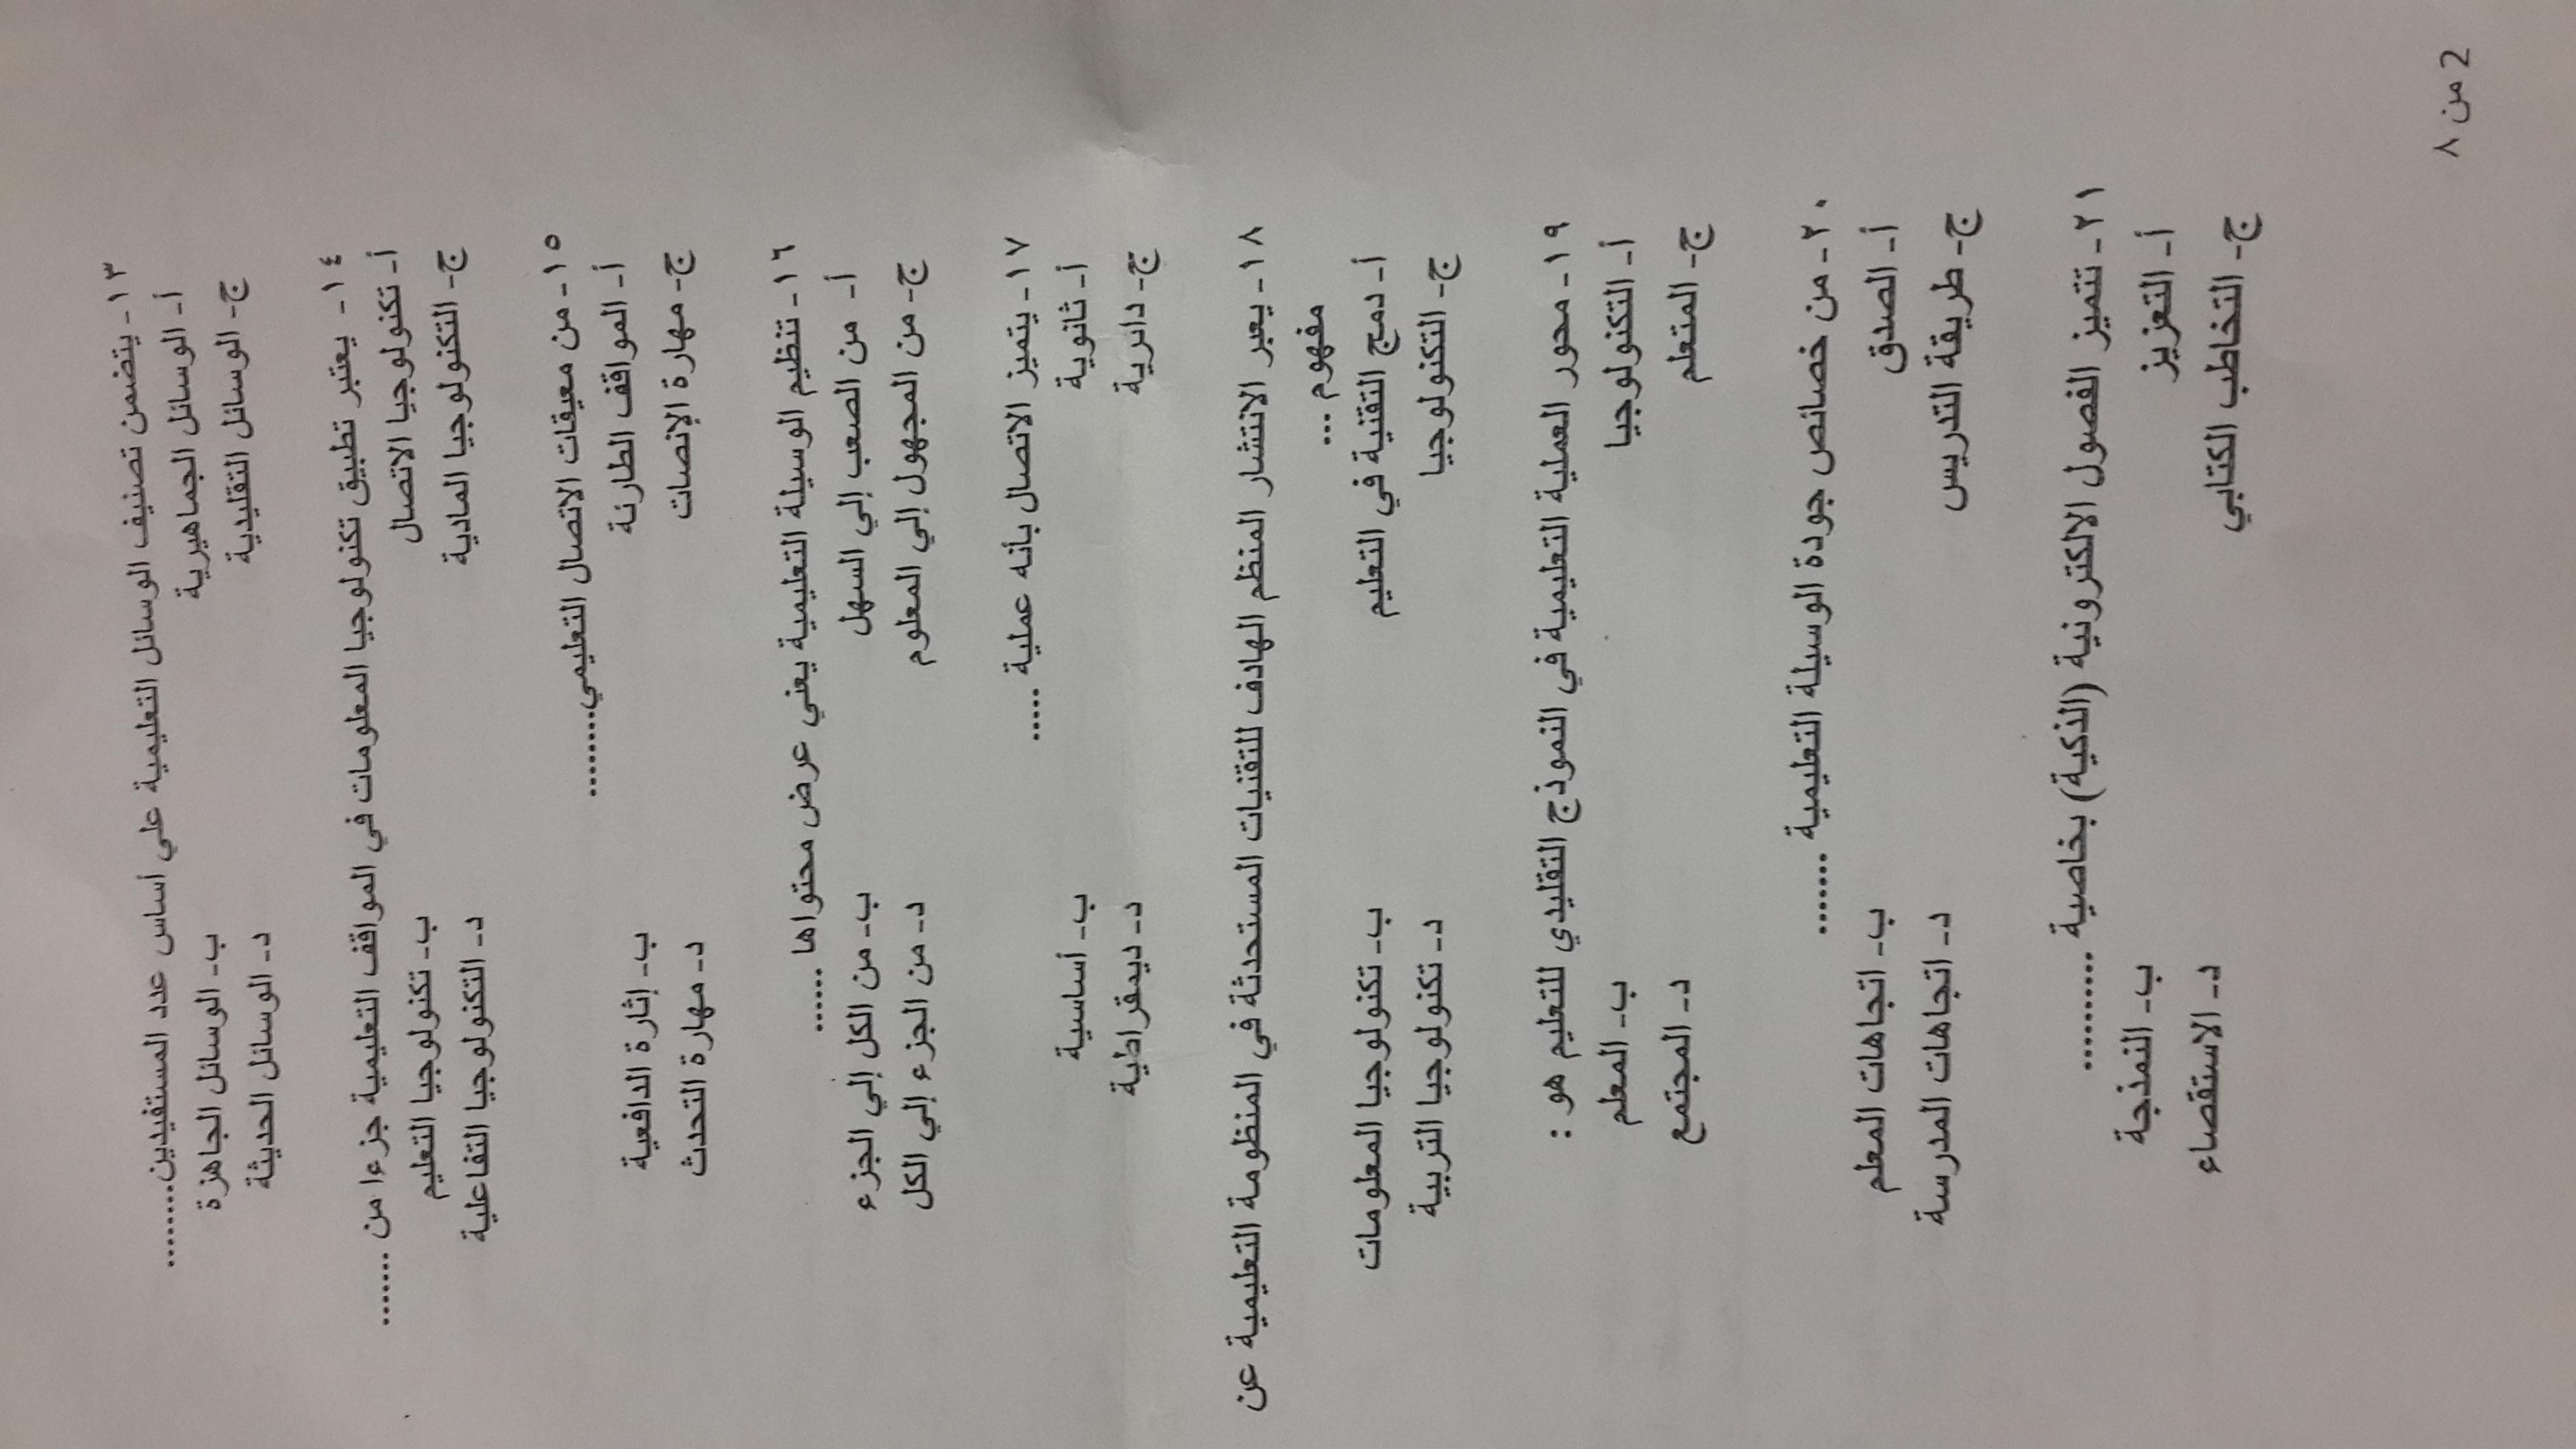 ١٣- يتضمن تصنيف الوسائل التعليمية علي أساس عدد المستفيدين.........
أ- الوسائل الجماهيرية ب- الوسائل الجاهزة
ج- الوسائل التقليدية د- الوسائل الحديثة
١٤- يعتبر تطبيق تكنولوجيا المعلومات في المواقف التعليمية جزءا من .......
أ- تكنولوجيا الاتصال ب- تكنولوجيا التعليم
ج- التكنولوجيا المادية د- التكنولوجيا التفاعلية
١٥- من معيقات الاتصال التعليمي.........
أ- المواقف الطارئة ب- إثارة الدافعية
ج- مهارة الإنصات د- مهارة التحدث
١٦- تنظيم الوسيلة التعليمية يعني عرض محتواها ......
أ- من الصعب إلي السهل ب- من الكل إلي الجزء
ج- من المجهول إلي المعلوم د- من الجزء إلي الكل
١٧- يتميز الاتصال بأنه عملية .....
أ- ثانوية ب- أساسية
ج- دائرية د- ديمقراطية
١٨- يعبر الانتشار المنظم الهادف للتقنيات المستحدثة في المنظومة التعليمية عن
مفهوم ...
أ- دمج التقنية في التعليم ب- تكنولوجيا المعلومات
ج- التكنولوجيا د- تكنولوجيا التربية
١٩- محور العملية التعليمية في النموذج التقليدي للتعليم هو :
أ- التكنولوجيا ب- المعلم
ج- المتعلم د- المجتمع
٢٠- من خصائص جودة الوسيلة التعليمية .......
أ- الصدق ب- اتجاهات المعلم
ج- طريقة التدريس د- اتجاهات المدرسة
٢١- تتميز الفصول الالكترونية (الذكية) بخاصية ..........
أ- التعزيز ب- النمذجة
ج- التخاطب الكتابي د- الاستقصاء
2 من ٨